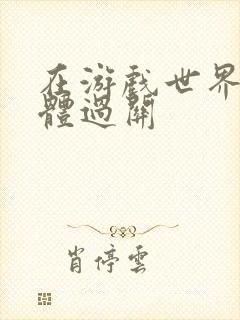 在游戏世界
體過關
肖停雲